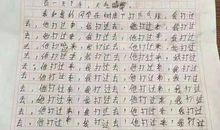 一天下午，天气晴朗
我和同学在树底下打乒乓球，我打过
去，他打过来，我打过去，他打过来，我打过
去，他打过来，我打过去，他打过来，我打过
去，他打过来，我打过去，他打过来，我打过
去，他打过来，我打过去，他打过来，我打过
去，他打过来，我打过去，他打过来，我打过
去，他打过来，我打过去，他打过来，我打过
去，他打过来，我打过去，他打过来，我打过
去，他打过来，我打过去，他打过来，我打过